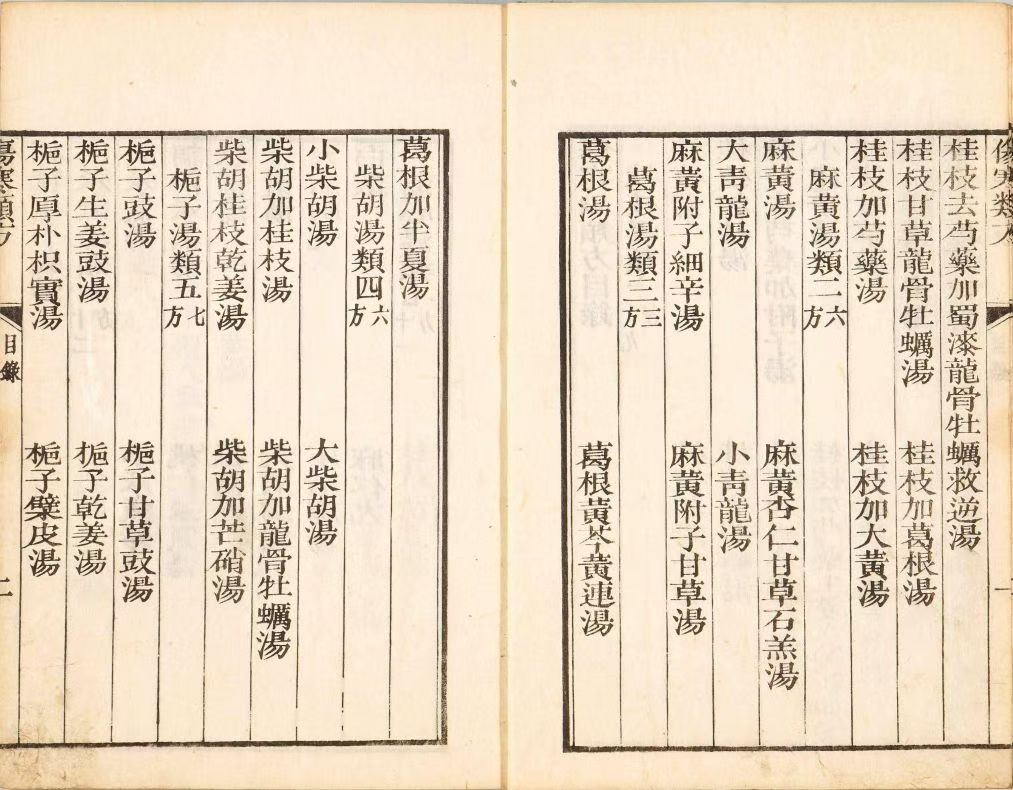 傷寒類方
一
桂枝去芍藥加蜀漆龍骨牡蠣救逆湯
桂枝甘草龍骨牡蠣湯　桂枝加葛根湯
桂枝加芍藥湯　桂枝加大黃湯
麻黃湯類二六方
麻黃湯　麻黃杏仁甘草石羔湯
大靑龍湯　小靑龍湯
麻黃附子細辛湯　麻黃附子甘草湯
葛根湯類三三方
葛根湯　葛根黃芩黃連湯
葛根加半夏湯
柴胡湯類四六方
小柴胡湯　大柴胡湯
柴胡加桂枝湯　柴胡加龍骨牡蠣湯
柴胡桂枝乾姜湯　柴胡加芒硝湯
梔子湯類五七方
梔子豉湯　梔子甘草豉湯
梔子生姜豉湯　梔子乾姜湯
梔子厚朴枳實湯　梔子檗皮湯
傷寒類方　目錄　二